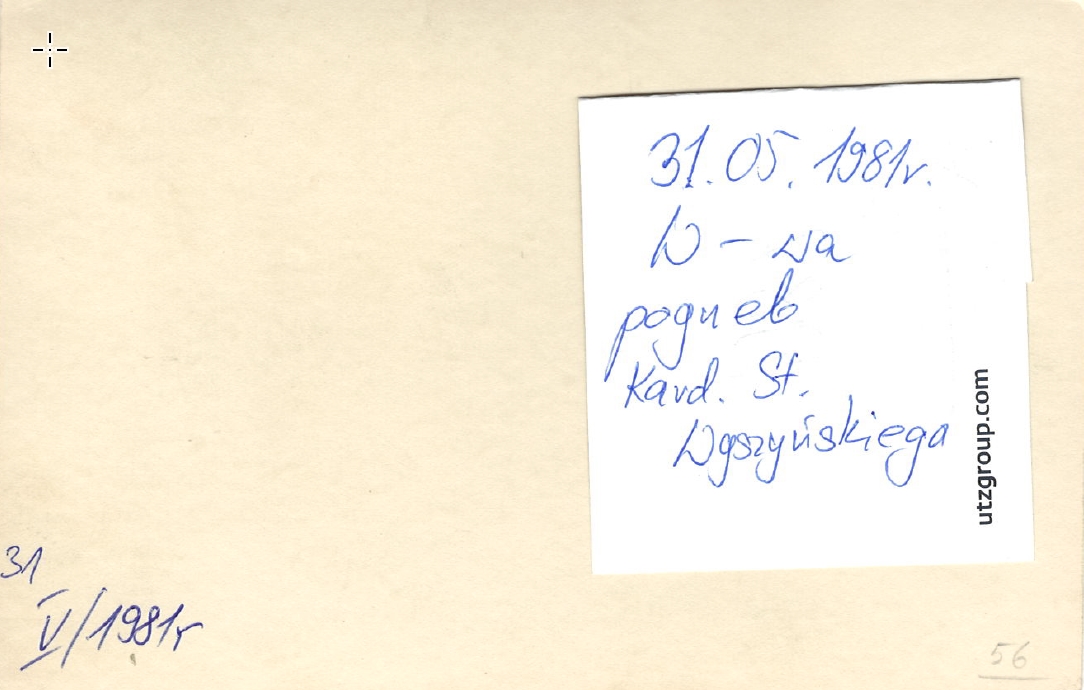 31.05.1981r.
W-wa
pogrzeb
Kard. St.
Wyszyńskiego
utzgroup.com
31
V/1981r
56